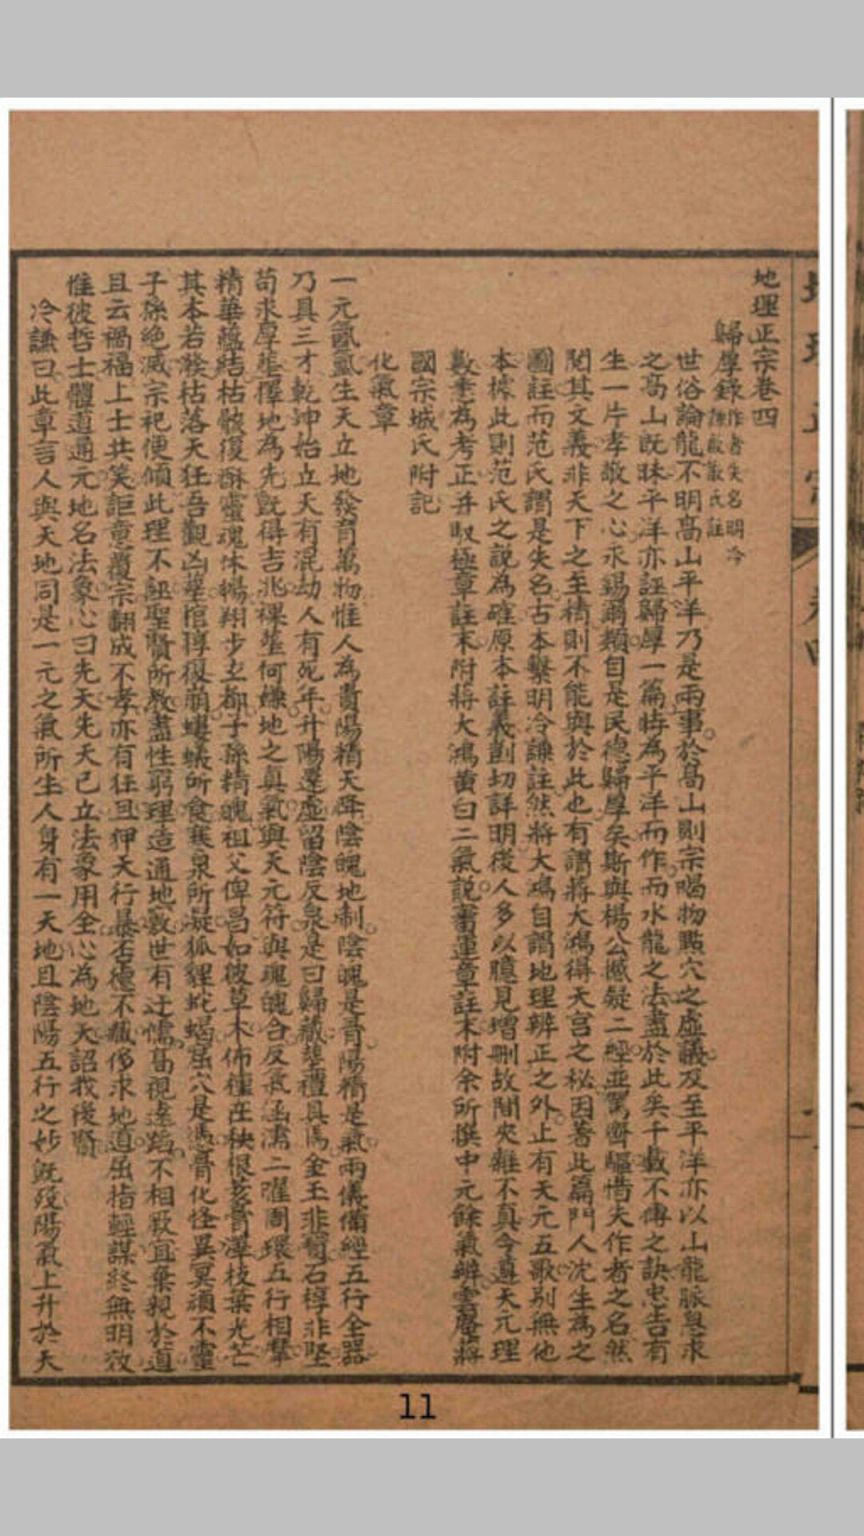 地理正宗卷四
歸厚錄作者失名明冷謙啟敬氏註
世俗論龍不明高山平洋乃是兩事於高山則宗喝物點穴之虛議及至平洋亦以山龍脈息求
之高山既昧平洋亦誣歸厚一篇特為平洋而作而水龍之法盡於此矣千載不傳之訣忠告有
生一片孝敬之心永錫爾類自是民德歸厚矣斯與楊公撼疑二經並駕齊驅惜夫作者之名然
閱其文義非天下之至精則不能與於此也有謂蔣大鴻得天宮之秘因著此篇門人沈生為之
圖註而范氏謂是失名古本繫明冷謙註然蔣大鴻自謂地理辨正之外止有天元五歌別無他
本據此則范氏之說為確原本註義剴切詳明後人多以臆見增刪故間夾雜不真今遵天元理
數重為考正并取極章註末附蔣大鴻黃白二氣說審運章註末附余所撰中元餘氣辨雲麈蔣
國宗城氏附記
化氣章
一元氤氳生天立地發育萬物惟人為貴陽精天降陰魄地制陰魄是育陽精是氣兩儀備經五行全器
乃具三才乾坤始立天有混劫人有死年升陽還虛留陰反泉是曰歸藏塋禮具焉金玉非寶石椁非堅
苟求厚塟擇地為先既得吉兆裸塟何嫌地之真氣與天元符與魂魄合反氣函濡二曜周環五行相摩
精華蘊結枯骸復酥靈魂休暢翔步玄都子孫精魄祖父俾昌如彼草木佈種在秧根荄膏澤枝葉光芒
其本若撥枯落夭狂吾觀凶塟棺椁復崩螻蟻所食寒泉所凝狐貍蛇蝎窟穴是憑膏化怪異冥頑不靈
子孫絕滅宗祀便傾此理不誣聖賢所教盡性窮理造通地竅世有迂儒高視遠蹈不相厥宜棄親於道
且云禍福上士共笑詎意覆宗翻成不孝亦有狂且狎天行暴否德不臧侈求地道屈指輕謀終無明效
惟彼哲士體道通元地名法象心曰先天先天已立法象用全心為地天詔我後賢
冷謙曰此章言人與天地同是一元之氣所生人身有一天地且陰陽五行之妙既歿陽氣上升於天
11